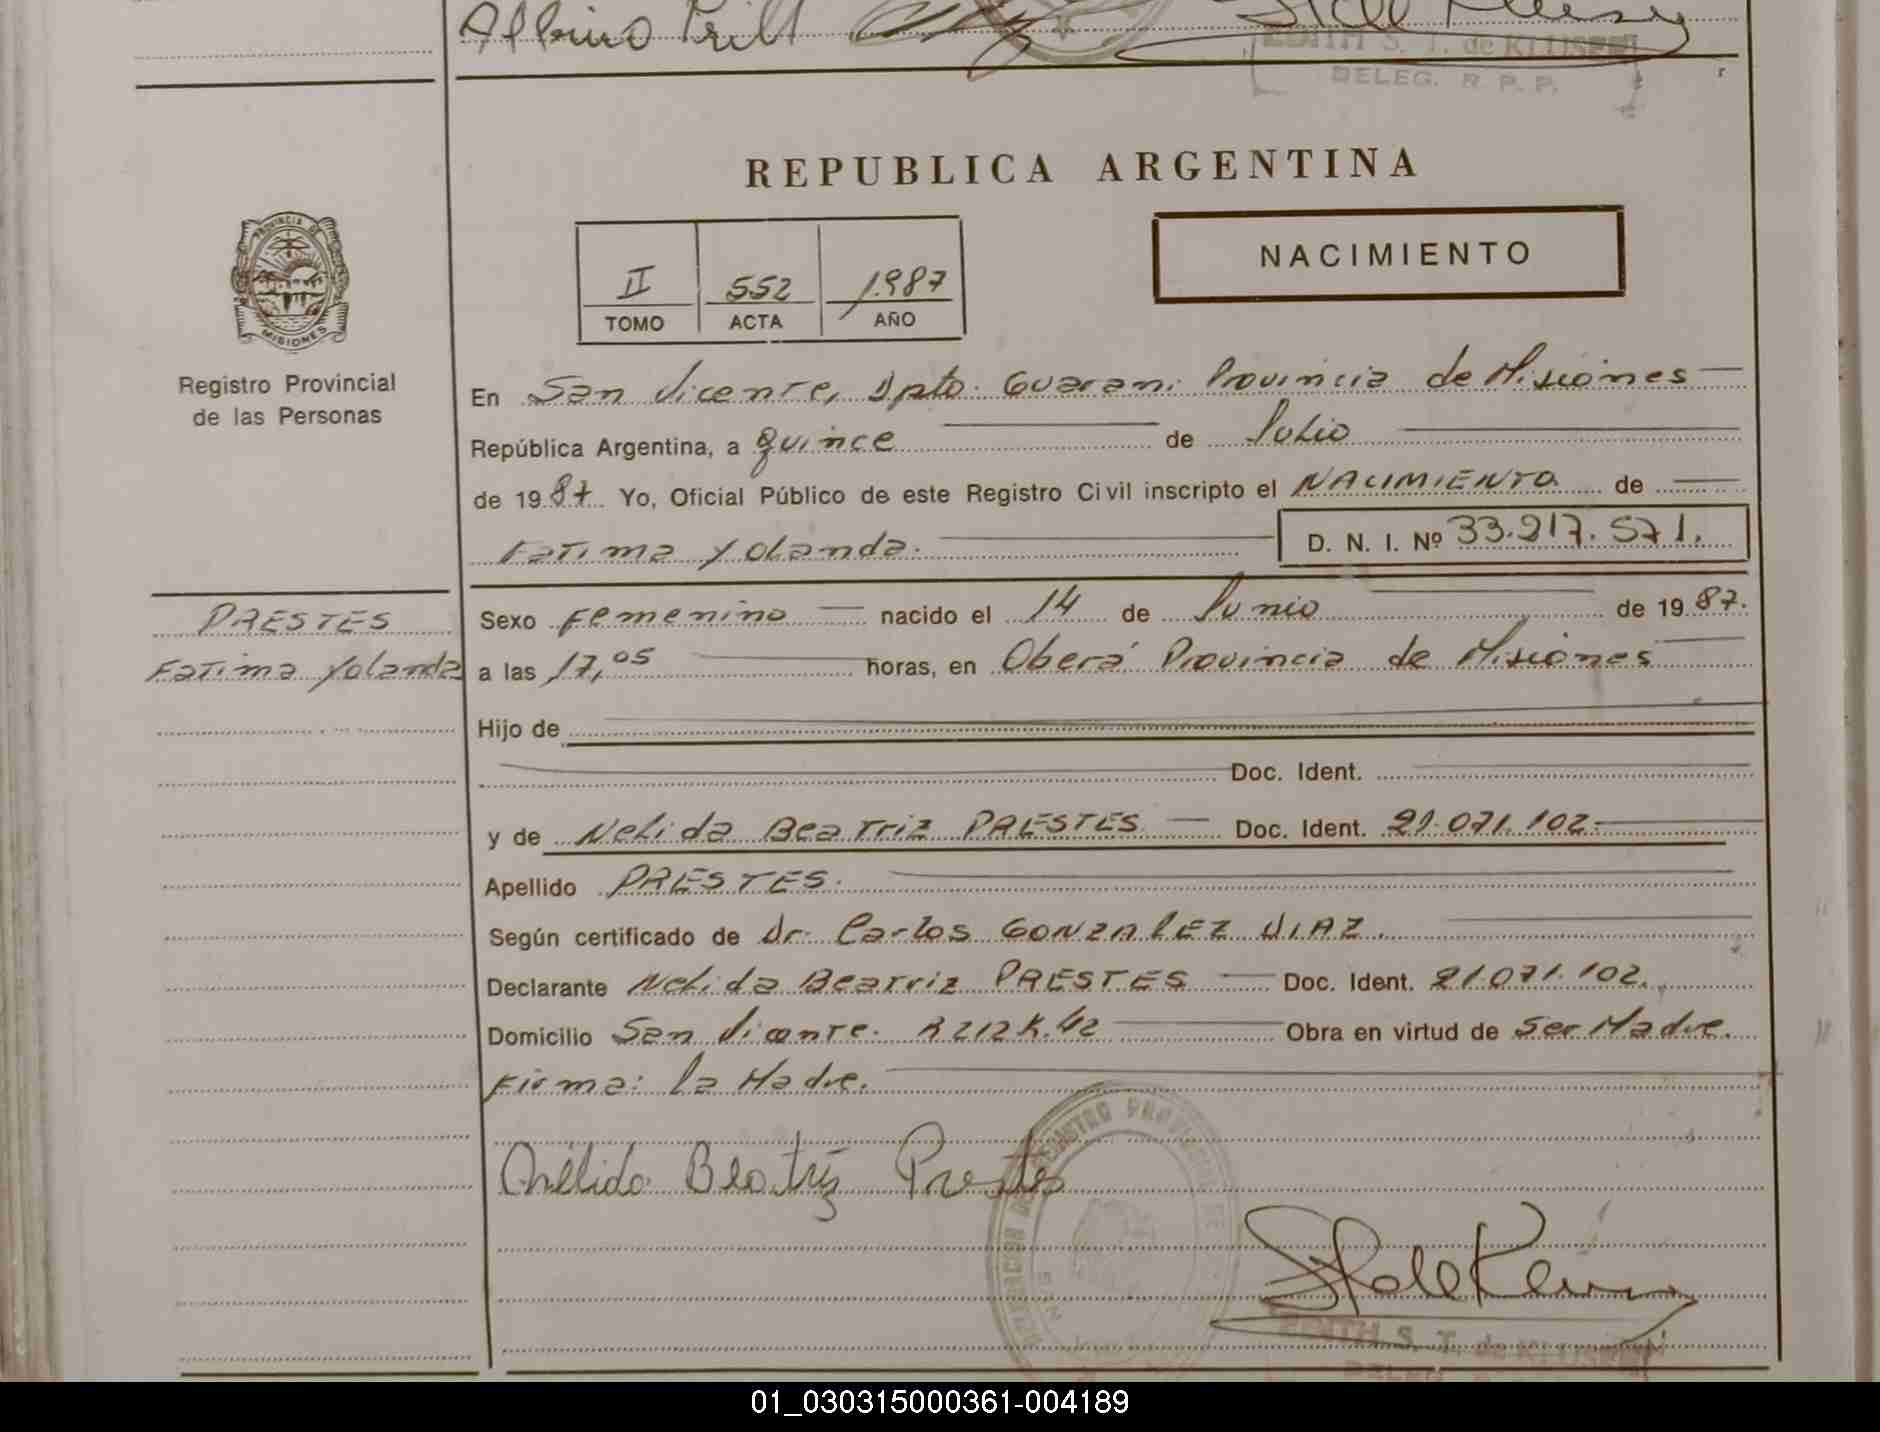 Albino Prill
EDITH S. T. de KLUSEN
DELEG. R. P. P.
REPUBLICA ARGENTINA
PROVINCIA DE
MISIONES
Registro Provincial
de las Personas
II 552 1987
TOMO ACTA AÑO
NACIMIENTO
En San Vicente, Dpto. Guarani Provincia de Misiones
República Argentina, a quince de Julio
de 1987 Yo, Oficial Público de este Registro Civil inscripto el NACIMIENTO de
Fatima Yolanda. D. N. I. Nº 33.217.571.
PRESTES
Fatima Yolanda
Sexo Femenino nacido el 14 de Junio de 1987.
a las 17,05 horas, en Oberá Provincia de Misiones
Hijo de
Doc. Ident.
y de Nelida Beatriz PRESTES Doc. Ident. 21.071.102.
Apellido PRESTES.
Según certificado de Dr. Carlos GONZALEZ DIAZ.
Declarante Nelida Beatriz PRESTES Doc. Ident. 21.071.102.
Domicilio San Vicente. R 212 K.42 Obra en virtud de Ser Madre.
Firma: La Madre.
Nélida Beatríz Prestes
EDITH S. T. de KLUSEN
01_030315000361-004189